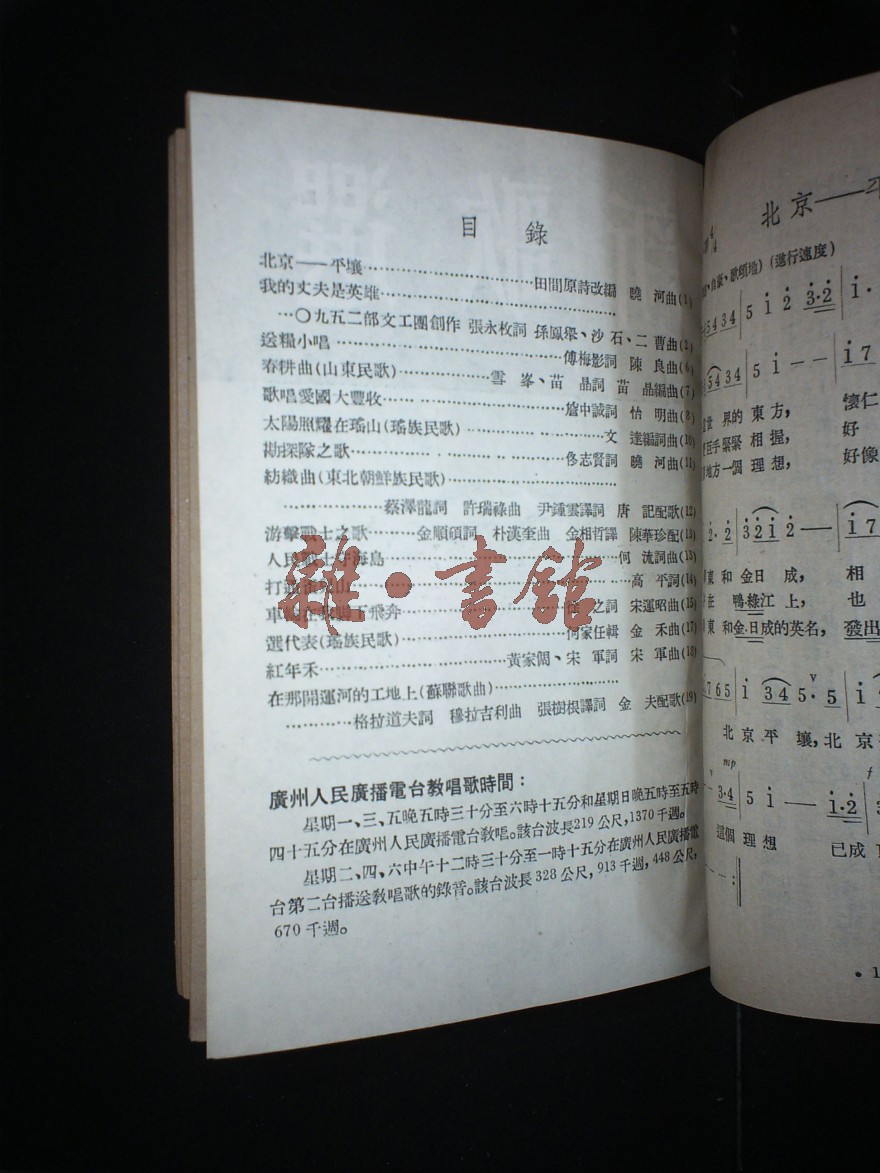 目錄
北京——平壤……………………田間原詩改編 曉 河曲(1)
我的丈夫是英雄……………………
…〇九五二部文工團創作 張永枚詞 孫鳳舉、沙 石、二 曹曲(2)
送糧小唱……………………傅梅影詞 陳 良曲(6)
春耕曲(山東民歌)……………雪 峯、苗 晶詞 苗 晶編曲(7)
歌唱愛國大豐收……………………詹中誠詞 怡 明曲(8)
太陽照耀在瑤山(瑤族民歌)……………文 達編詞曲(10)
勘探隊之歌……………………佟志賢詞 曉 河曲(11)
紡織曲(東北朝鮮族民歌)……………………
……………蔡澤龍詞 許瑞祿曲 尹鍾雲譯詞 唐 記配歌(12)
游擊戰士之歌………金順碩詞 朴漢奎曲 金相哲譯 陳華珍配(13)
人民戰士守海島……………………何 流詞曲(13)
打通 山……………………高 平詞(14)
車 在 下飛奔…………… 之詞 宋運昭曲(15)
選代表(瑤族民歌)……………何家任輯 金 禾曲(17)
紅年禾……………………黃家閣、宋 軍詞 宋 軍曲(18)
在那開運河的工地上(蘇聯歌曲)……………………
…………格拉道夫詞 穆拉吉利曲 張樹根譯詞 金 夫配歌(19)
廣州人民廣播電台教唱歌時間:
星期一、三、五晚五時三十分至六時十五分和星期日晚五時至五時
四十五分在廣州人民廣播電台敎唱。該台波長219公尺,1370千週。
星期二、四、六中午十二時三十分至一時十五分在廣州人民廣播電
台第二台播送敎唱歌的錄音。該台波長 328 公尺, 913 千週, 448 公尺,
670 千週。
雜·書館
北京——平
4/4
自豪、歌頌地) (進行速度)
5 4 3 4 | 5 i 2 3·2 | i·
5 4 3 4 | 5 i — — | i 7
世 界的 東 方, 懷仁
手緊緊 相 握, 好
地方一個 理 想, 好像
2·2· | 3 2 i 2 — | i 7
東 和 金日 成, 相
在 鴨綠江 上, 也
東 和金日成的英名, 發出
7 6 5 | i 3 4 5· 5 | i
北 京 平 壤, 北 京
mp
f
3·4 | 5 i — — | i·2
這個 理想 已成
• 1